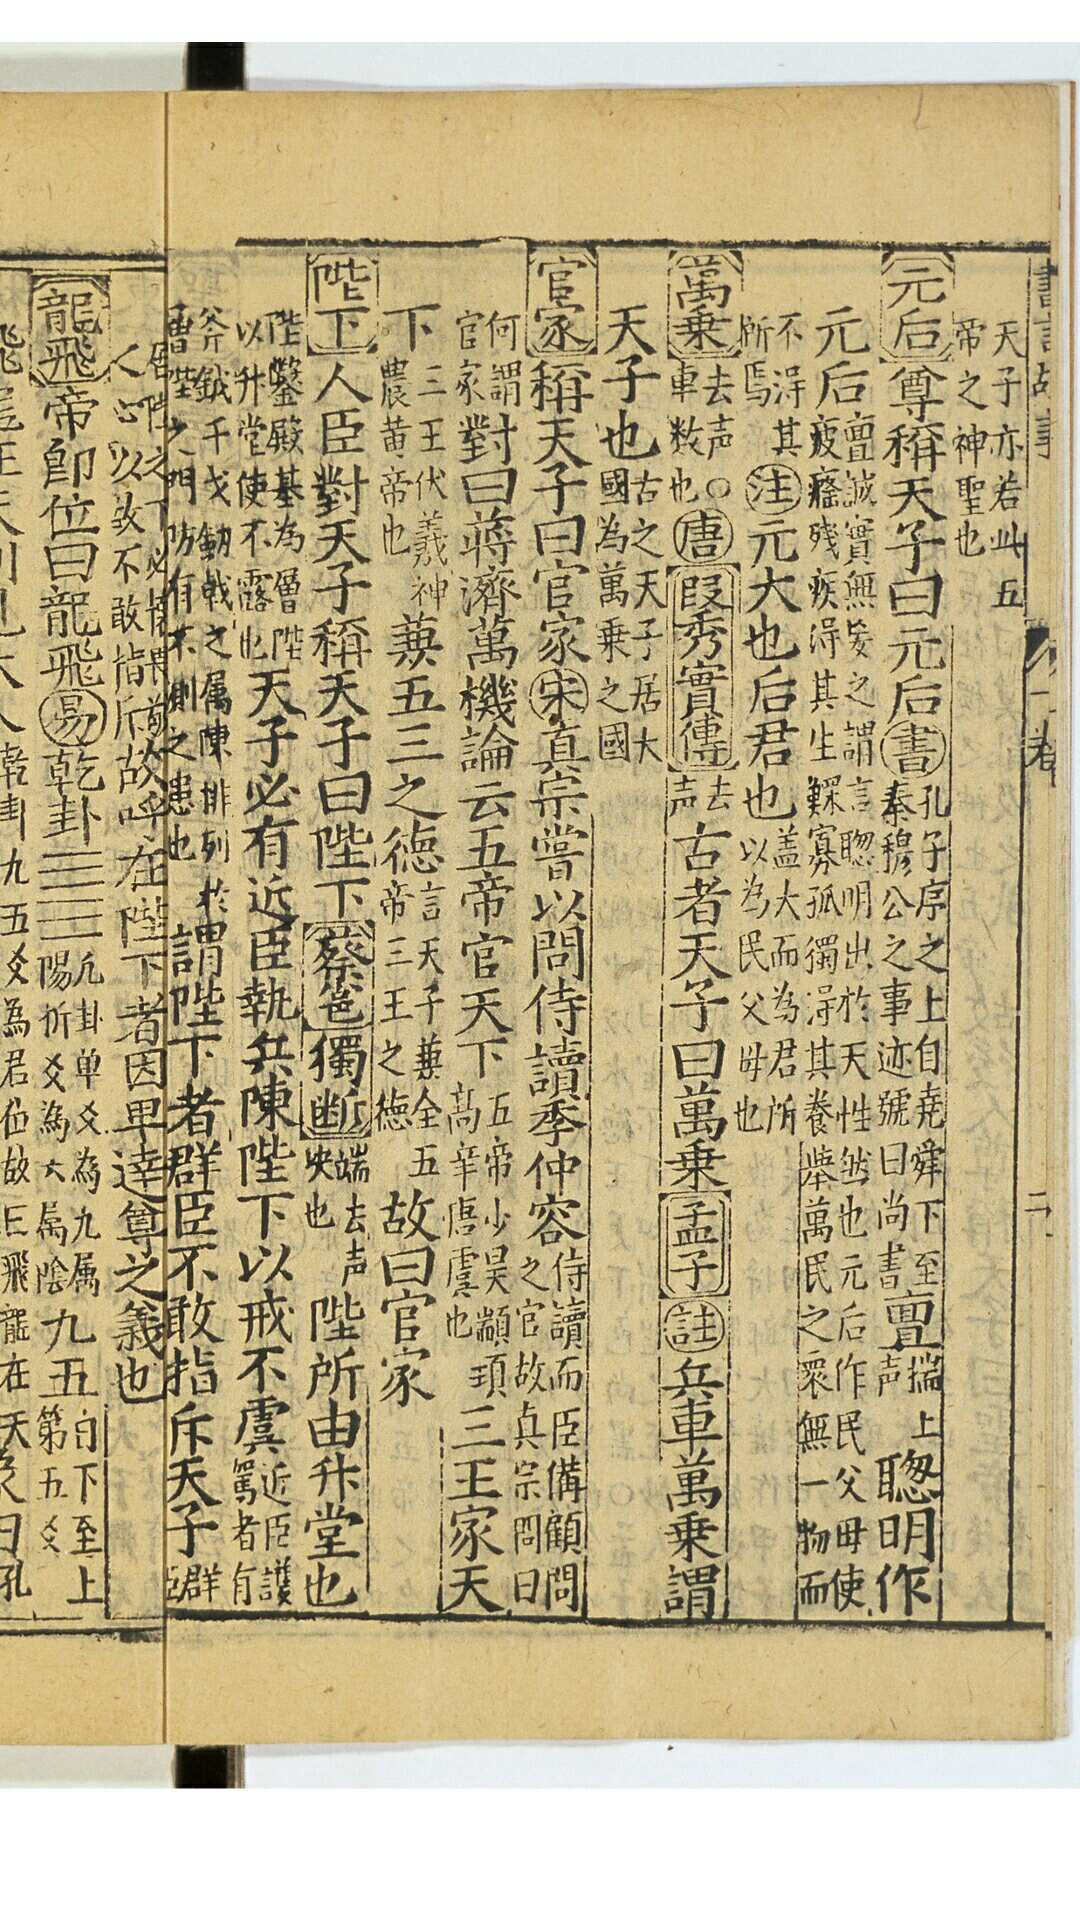 書言故事 一卷 二
天子亦若此五
帝之神聖也
元后尊稱天子曰元后書孔子序之上自堯舜下至
秦穆公之事迹號曰尚書亶揣上
声聦明作
元后亶誠實無妄之謂言聦明出於天性然也元后作民父母使
疲癃殘疾淂其生鰥寡孤獨淂其養舉萬民之衆無一物而
不淂其
所焉注元大也后君也盖大而為君所
以為民父母也
萬乗去声○
車数也唐叚秀實傳去
声古者天子曰萬乗孟子註兵車萬乗謂
天子也古之天子居大
國為萬乗之國
官家稱天子曰官家宋真宗嘗以問侍讀季仲容侍讀而臣備顧問
之官故真宗問曰
何謂
官家對曰蒋濟萬機論云五帝官天下五帝少昊顓頊
高辛唐虞也三王家天
下三王伏羲神
農黄帝也蒹五三之徳言天子蒹全五
帝三王之徳故曰官家
陛下人臣對天子稱天子曰陛下蔡邕獨断端去声
央也陛所由升堂也
陛鑿殿基為層陛
以升堂使不露也天子必有近臣執兵陳陛下以戒不虞近臣護
駕者有
斧鉞干戈劒戟之属陳排列於
層陛之門防有不測之患也謂陛下者群臣不敢指斥天子群
臣
居陛之下必
人心以致不敢指斥故呼在陛下者因卑逹尊之義也
龍飛帝即位曰龍飛易乾卦䷀凢卦单爻為九属
陽折爻為六属陰九五自下至上
第五爻
大人乾卦九五爻為君位故曰飛龍在天